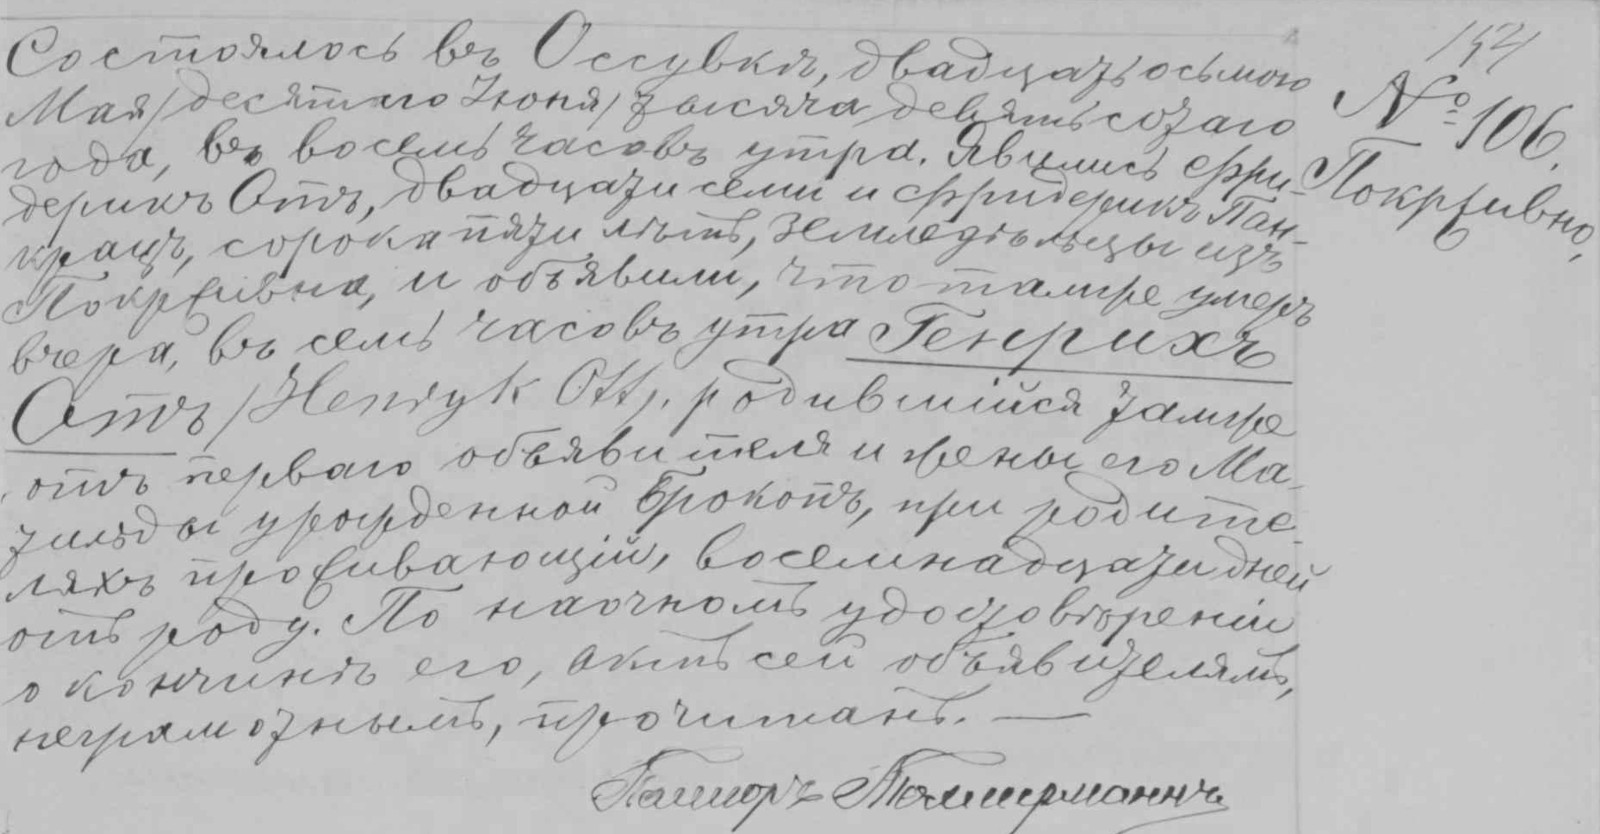 Состоялось въ Оссувкѣ, двадцать осьмого
Мая/десятаго Іюня/тысяча девятьсотаго
года, въ восемь часовъ утра. Явились Фри-
дерикъ Оттъ, двадцати семи и Фридерикъ Пан-
крацъ, сорока пяти лѣтъ, земледѣльцы изъ
Покржывна, и объявили, что тамже умеръ
вчера, въ семь часовъ утра Генрихъ
Оттъ /Henryk Ott/, родившійся тамже
отъ перваго объявителя и жены его Ма-
тильды урожденной Брокопъ, при родите-
ляхъ проживающій, восемнадцати дней
отъ роду. По наочномъ удостовѣреніи
о кончинѣ его, актъ сей объявителямъ,
неграмотнымъ, прочитанъ. —
Пасторъ
№ 106.
Покржывно,